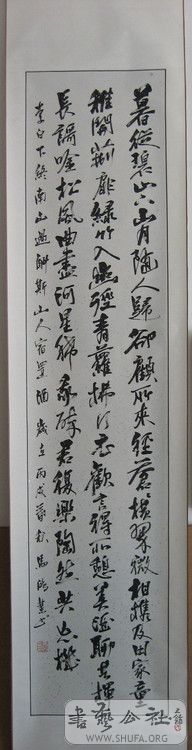 暮從碧山下山月隨人歸卻顧所來徑蒼蒼橫翠微相攜及田家童
稚開荊扉綠竹入幽徑青蘿拂行衣歡言得所憩美酒聊共揮
長謌唫松風曲盡河星稀我醉君復樂陶然共忘機
李白下終南山過斛斯山人宿置酒 歲在丙戌
書藝公社
WWW.SHUFA.ORG